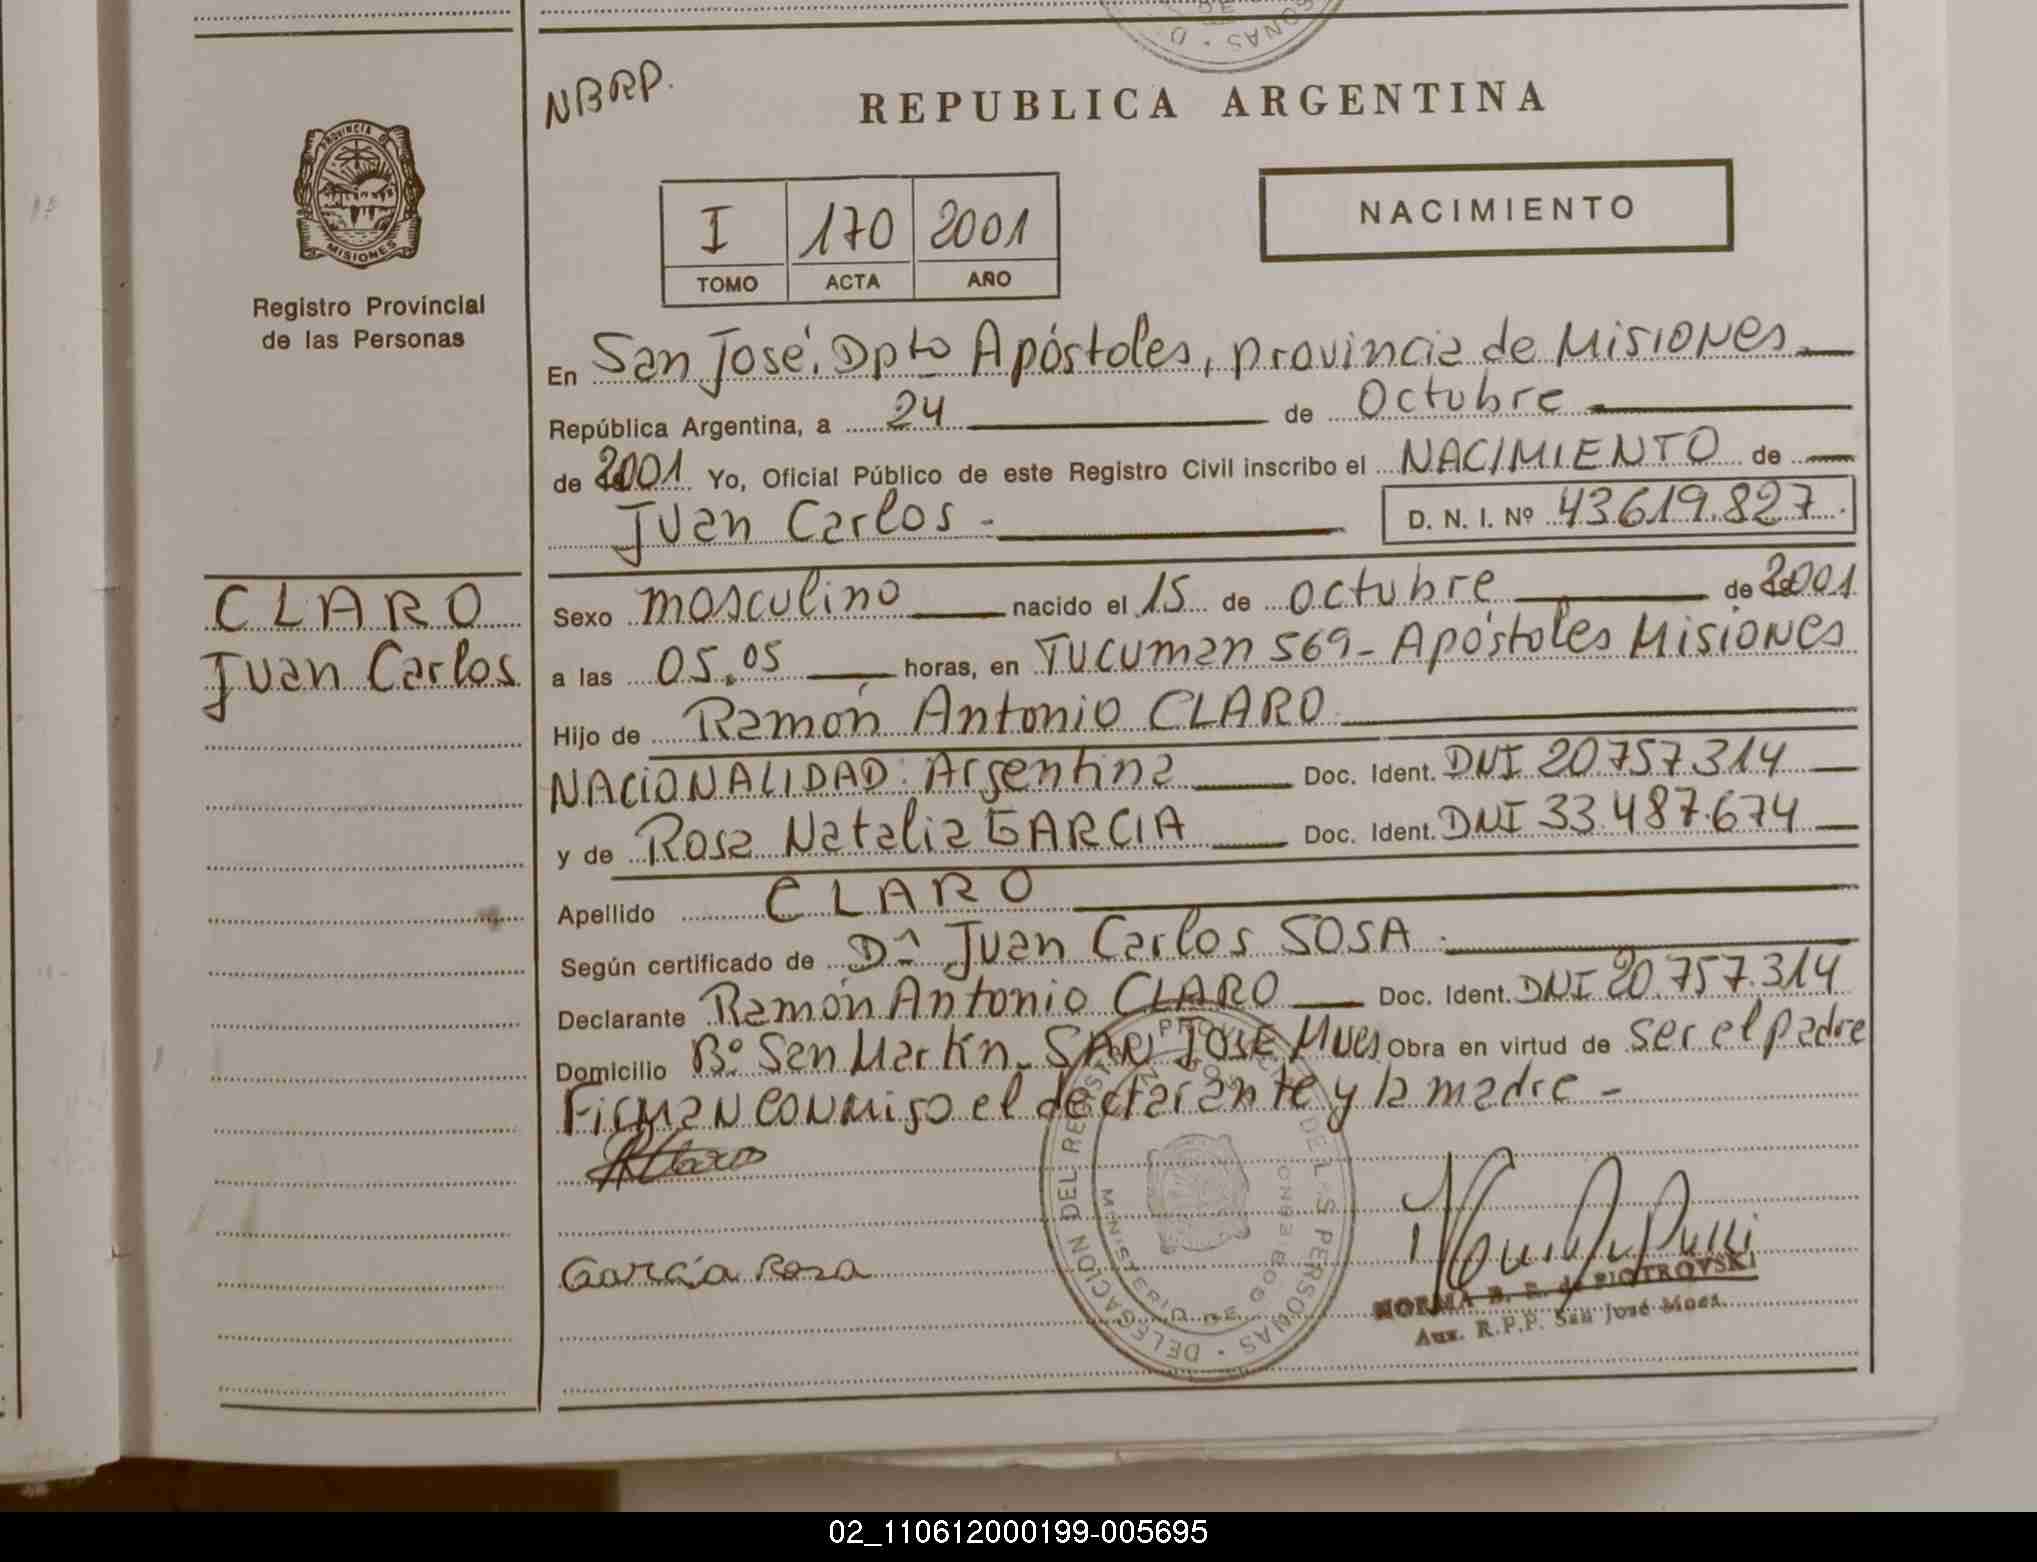 NBRP.
REPUBLICA ARGENTINA
PROVINCIA DE
MISIONES
Registro Provincial
de las Personas
I 170 2001
TOMO ACTA AÑO
NACIMIENTO
En San José. Dpto Apóstoles, provincia de Misiones
República Argentina, a 24 de Octubre
de 2001 Yo, Oficial Público de este Registro Civil inscribo el NACIMIENTO de
Juan Carlos - D. N. I. Nº 43.619.827.
CLARO
Juan Carlos
Sexo masculino nacido el 15 de octubre de 2001
a las 05.05 horas, en Tucuman 569 - Apóstoles Misiones
Hijo de Ramón Antonio CLARO
NACIONALIDAD: Argentina Doc. Ident. DNI 20.757.314
y de Rosa Natalia GARCIA Doc. Ident. DNI 33.487.674
Apellido CLARO
Según certificado de Dr Juan Carlos SOSA.
Declarante Ramón Antonio CLARO Doc. Ident. DNI 20.757.314
Domicilio Bº San Martin - SAN JOSE Mnes Obra en virtud de ser el padre
Firman conmigo el declarante y la madre -
García Rosa
DELEGACION DEL REGISTRO PROVINCIAL DE LAS PERSONAS
MINISTERIO DE GOBIERNO
NORMA B. R. de PIOTROVSKI
Aux. R.P.P. San José Mnes.
02_110612000199-005695